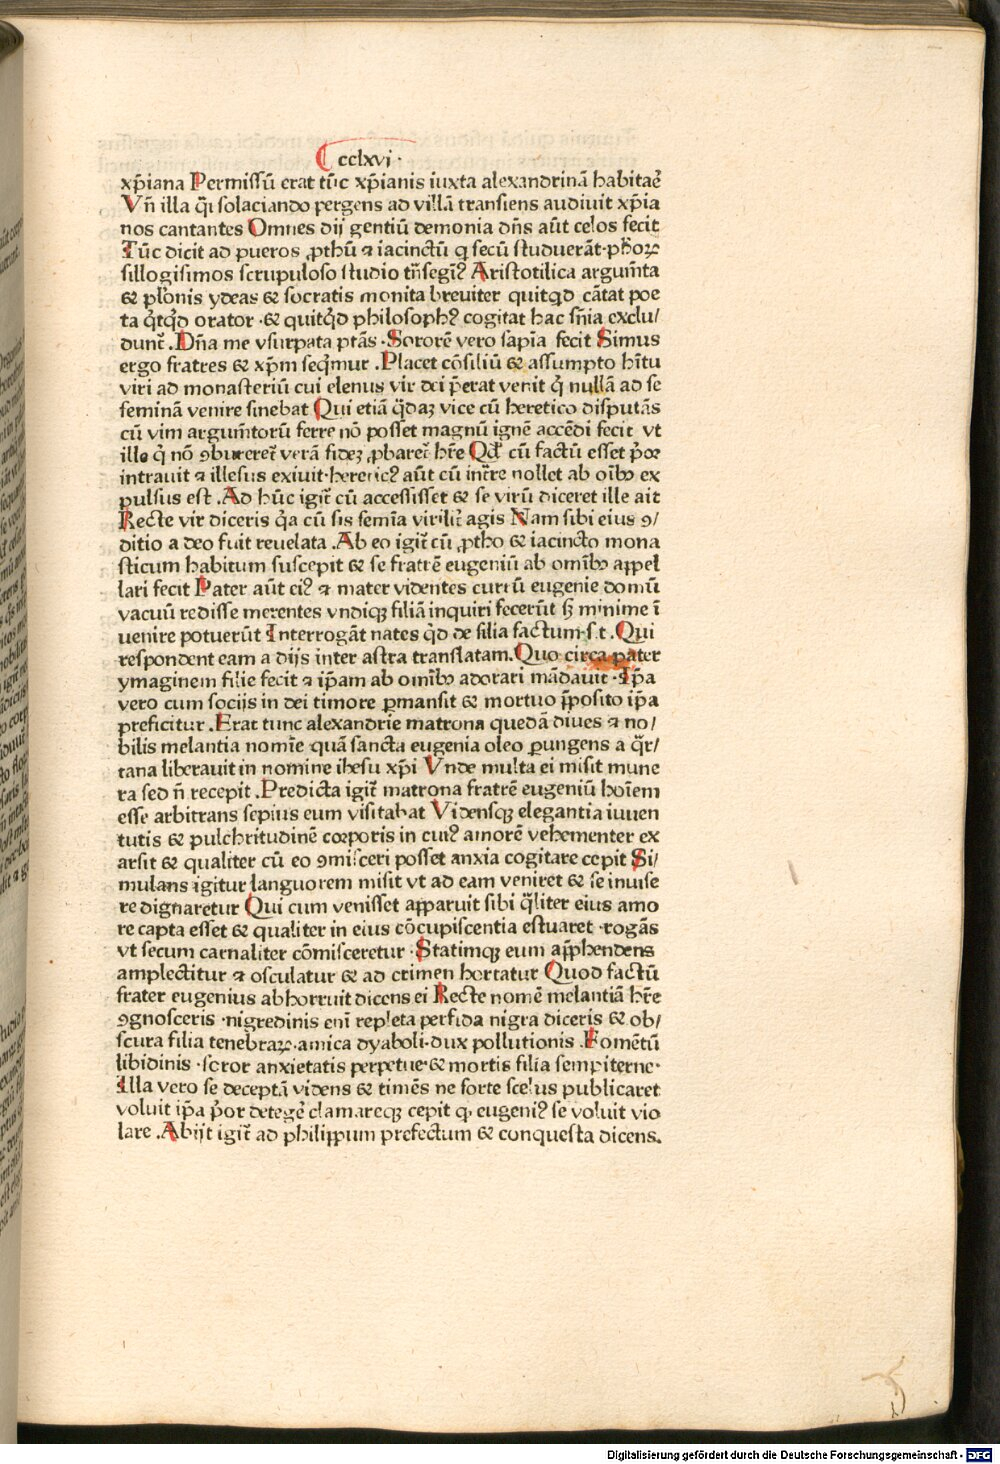 cclxvi·
xp̄iana Permissū erat tūc xp̄ianis iuxta alexandrinā habitaē
Vn̄ illa q̄i solaciando pergens ad villā transiens audiuit xp̄ia
nos cantantes Omnes dij gentiū demonia dn̄s aūt celos fecit
Tūc dicit ad pueros ꝓthū ⁊ iacinctū q secū studuerāt·ph̄oꝝ
sillogismos scrupuloso studio tn̄segiꝰ Aristotilica argum̄ta
& pl̄onis ydeas & socratis monita breuiter quitqd cātat poe
ta qͥtqͥd orator ·& quitqͥd philosophꝰ cogitat hac sn̄ia exclu/
dunt̄ .Dn̄a me vsurpata ptās ·Sororē vero sapīa fecit Simus
ergo fratres & xp̄m seqͣmur .Placet cōsiliū & assumpto hītu
viri ad monasteriū cui elenus vir dei p̄erat venit qͥ nullā ad se
feminā venire sinebat Qui etiā qͣdaꝫ vice cū heretico disputās
cū vim argum̄torū ferre nō posset magnū ignē accēdi fecit vt
ille qͥ nō ꝯbureret̄ verā fideꝫ ꝓbaret̄ hr̄e Qd̄ cū factū esset pͥor
intrauit ⁊ illesus exiuit·hereticꝰ aūt cū int̄re nollet ab oībꝰ ex
pulsus est .Ad hūc igit̄ cū accessisset & se virū diceret ille ait
Recte vir diceris qͥa cū sis semīa virilit̄ agis Nam sibi eius ꝯ/
ditio a deo fuit reuelata .Ab eo igit̄ cū ꝓtho & iacincto mona
sticum habitum suscepit & se fratrē eugeniū ab omībꝰ appel
lari fecit Pater aūt eiꝰ ⁊ mater videntes currū eugenie domū
vacuū redisse merentes vndiqꝫ filiā inquiri fecerūt sꝫ minime ī
uenire potuerūt Interrogāt nates qͥd de silia factum s.t .Qui
respondent eam a dijs inter astra translatam.Quo circa pater
ymaginem filie fecit ⁊ ip̄am ab omībꝰ adorari mādauit ·Ip̄a
vero cum socijs in dei timore ꝑmansit & mortuo p̄posito ip̄a
preficitur .Erat tunc alexandrie matrona quedā diues ⁊ no/
bilis melantia nomīe quā sancta eugenia oleo ꝑungens a qͣr/
tana liberauit in nomine ihesu xp̄i Vnde multa ei misit mune
ra sed n̄ recepit .Predicta igit̄ matrona fratrē eugeniū hoīem
esse arbitrans sepius eum visitabat Videnscꝫ elegantia iuuen
tutis & pulchritudinē corporis in cuiꝰ amorē vehementer ex
arsit & qualiter cū eo ꝯmisceri posset anxia cogitare cepit Si/
mulans igitur languorem misit vt ad eam veniret & se inuise
re dignaretur Qui cum venisset apparuit sibi qͣliter eius amo
re capta esset & qualiter in eius cōcupiscentia estuaret ·rogās
vt secum carnaliter cōmisceretur ·Statimqꝫ eum app̄hendens
amplectitur ⁊ osculatur & ad crimen hortatur Quod factū
frater eugenius abhorruit dicens ei Recte nomē melantiā hr̄e
ꝯgnosceris ·nigredinis enī repleta perfida nigra diceris & ob/
scura filia tenebraꝝ·amica dyaboli·dux pollutionis .Fomētū
libidinis ·soror anxietatis perpetue·& mortis filia sempiterne·
Illa vero se deceptā videns & timēs ne forte scelus publicaret
voluit ip̄a pͥor detegē clamareqꝫ cepit q eugeniꝰ se voluit vio
lare .Abijt igit̄ ad philippum prefectum & conquesta dicens.
Digitalisierung gefördert durch die Deutsche Forschungsgemeinschaft - DFG